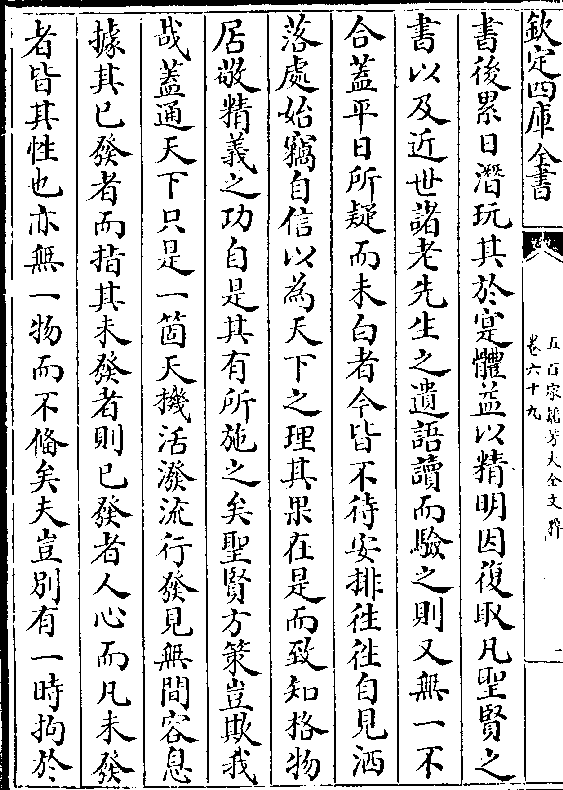 欽定四庫全書
五百家播芳大全文粹
卷六十九
一
書後累日潛玩其於寔體益以精明因復取凡聖賢之
書以及近世諸老先生之遺語讀而驗之則又無一不
合蓋平日所疑而未白者今皆不待安排徃徃自見洒
落處始竊自信以為天下之理其果在是而致知格物
居敬精義之功自是其有所施之矣聖賢方策豈欺我
哉蓋通天下只是一箇天機活潑流行發見無間容息
據其已發者而指其未發者則已發者人心而凡未發
者皆其性也亦無一物而不備矣夫豈別有一時拘於